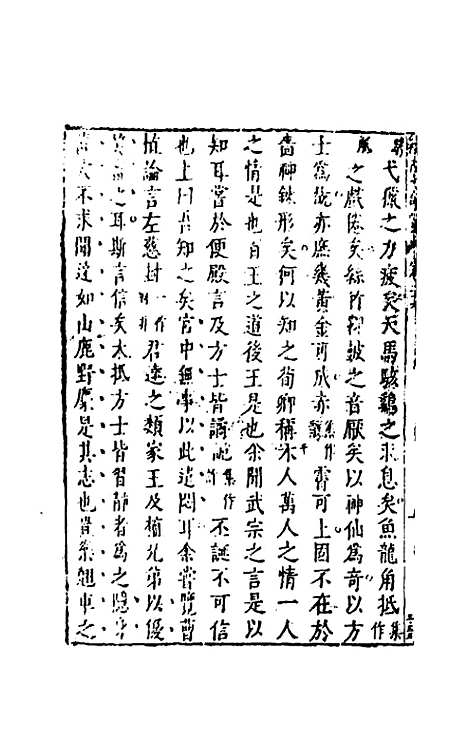 弋獵之力疲矣天馬駭鷄之求息矣魚龍角抵集作
之戲倦矣絲竹鞞皷之音厭矣以神仙爲奇以方
士爲玩亦庶幾黃金可成亦集作霄可上固不在於
嗇神鍊形矣何以知之荀卿稱千人萬人之情一人
之情是也百王之道後王是也余聞武宗之言是以
知耳嘗於便殿言及方士皆譎詭集作丕誕不可信
也上曰吾知之矣宮中無事以此遣悶耳余嘗覽曹
植論言左慈封一作君達之類家王及植兄弟以優
笑畜之耳斯言信矣大抵方士皆習靜者爲之隱身
巖穴不求聞達如山鹿野麋是其志也豈樂翹車之